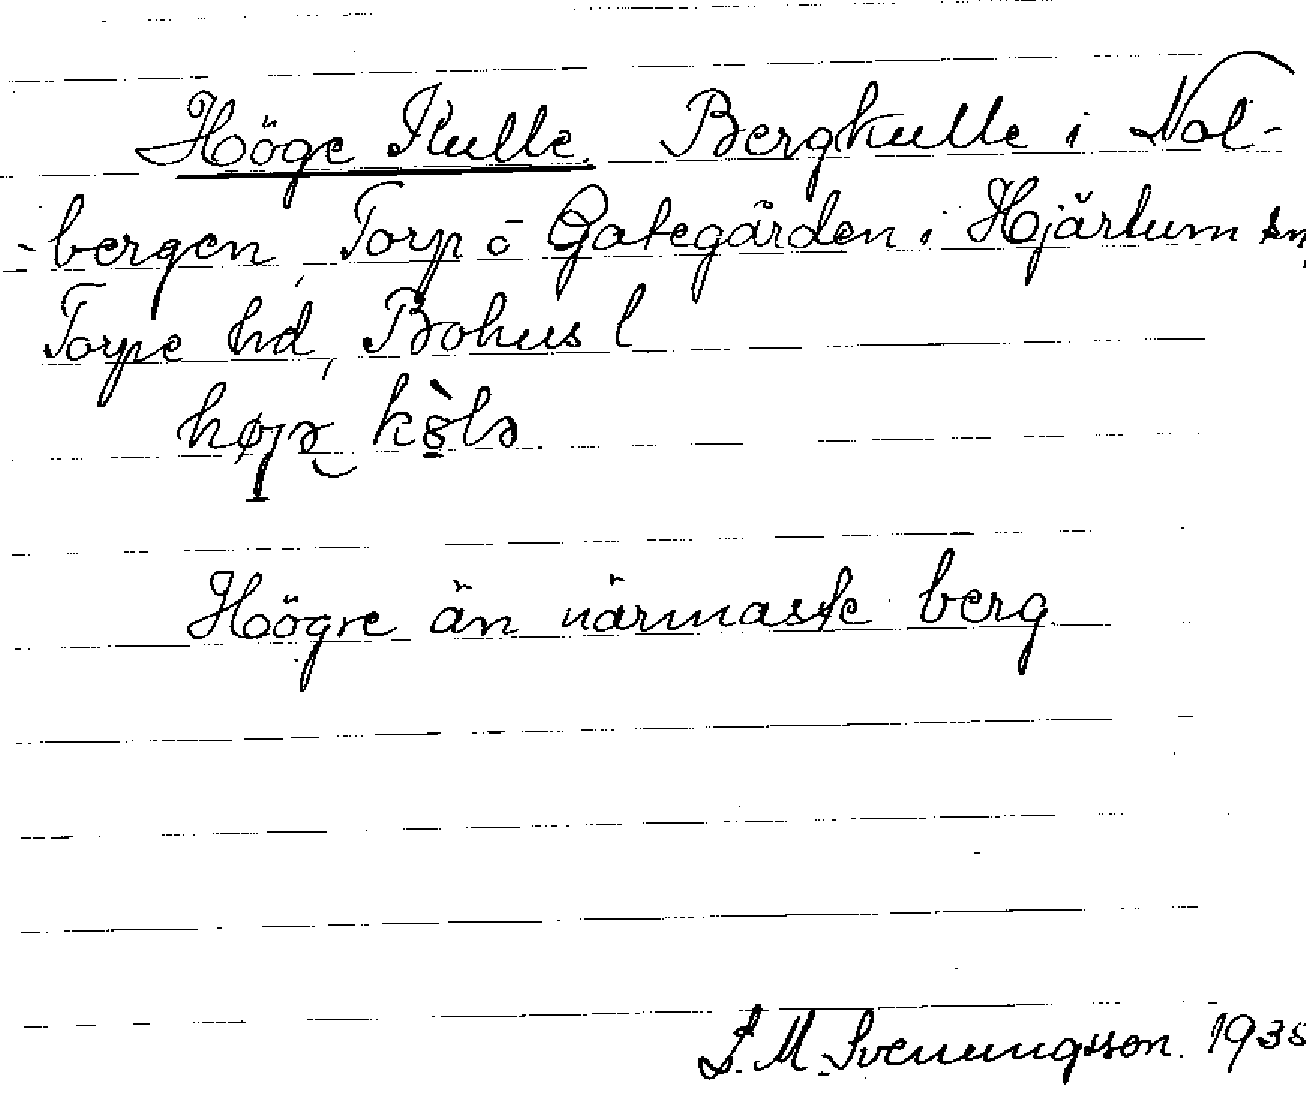 Höge Kulle. Bergkulle i Nol-
-bergen, Torp o Gategården i Hjärtum sn,
Torpe hd, Bohus l
Högre än närmaste berg
S. M. Svenungsson. 1935